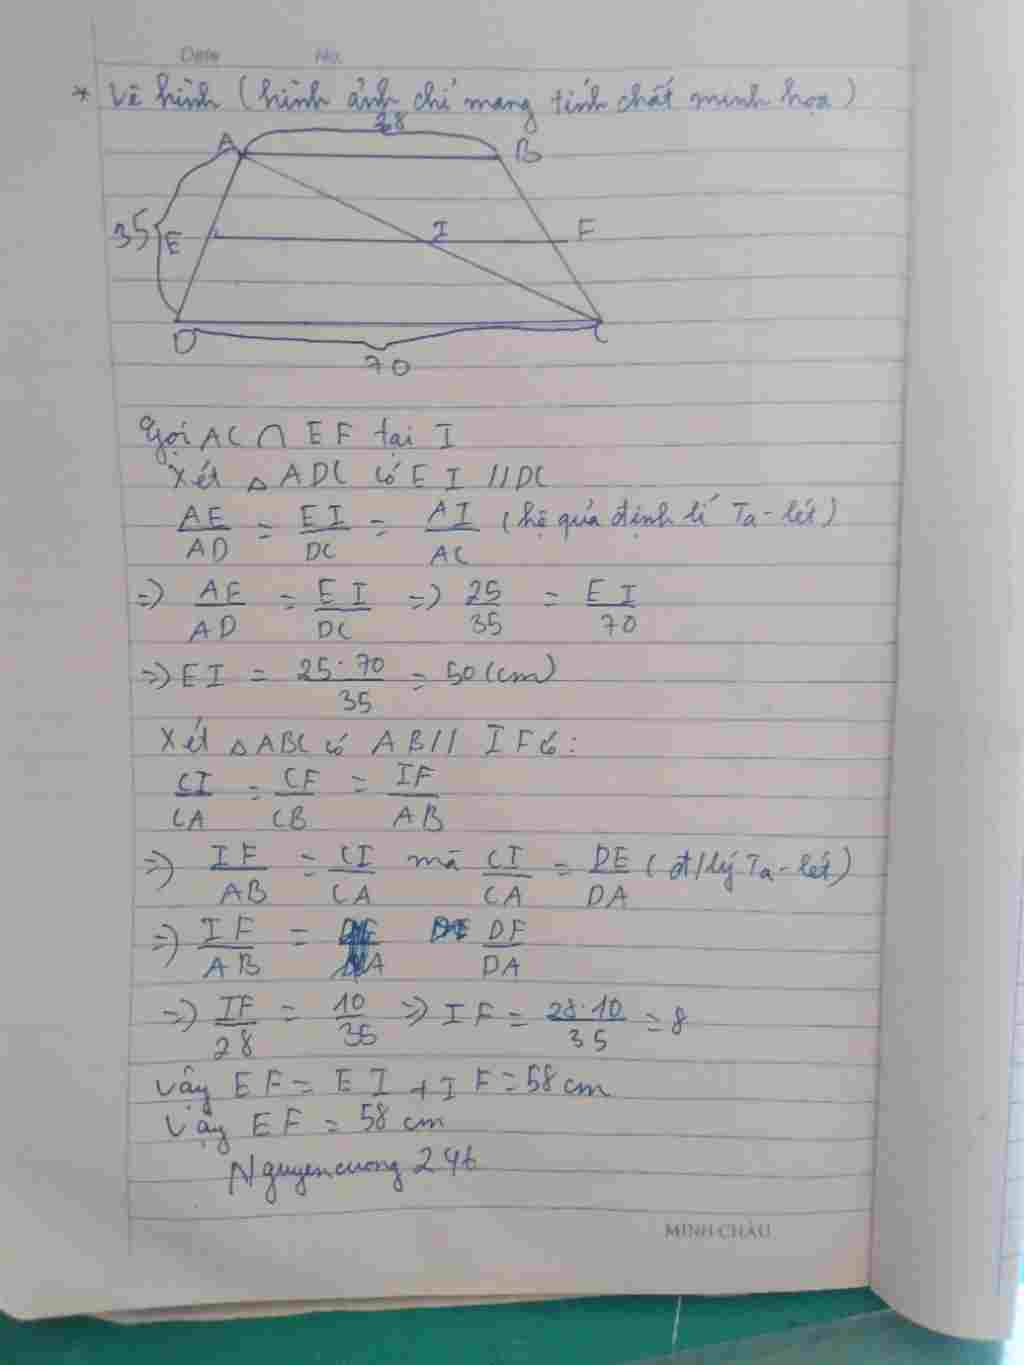 Date No.
* Vẽ hình (hình ảnh chỉ mang tính chất minh họa)
28
A B
35 E I F
D C
70
Gọi AC ∩ EF tại I
Xét △ ADC có EI // DC
AE/AD = EI/DC = AI/AC (hệ quả định lí Ta-lét)
=> AE/AD = EI/DC => 25/35 = EI/70
=> EI = 25.70/35 = 50 (cm)
Xét △ABC có AB // IF có:
CI/CA = CF/CB = IF/AB
=> IF/AB = CI/CA mà CI/CA = DE/DA (đ/lý Ta-lét)
=> IF/AB = DE/DA
=> IF/28 = 10/35 => IF = 28.10/35 = 8
Vậy EF = EI + IF = 58 cm
Vậy EF = 58 cm
Nguyencuong 246
MINH CHÂU